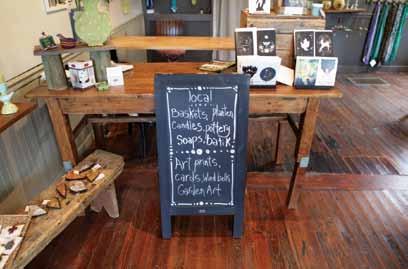 local
Baskets,
Candles, pottery
Soaps, batik
Art prints,
cards, Wind bells
Garden Art